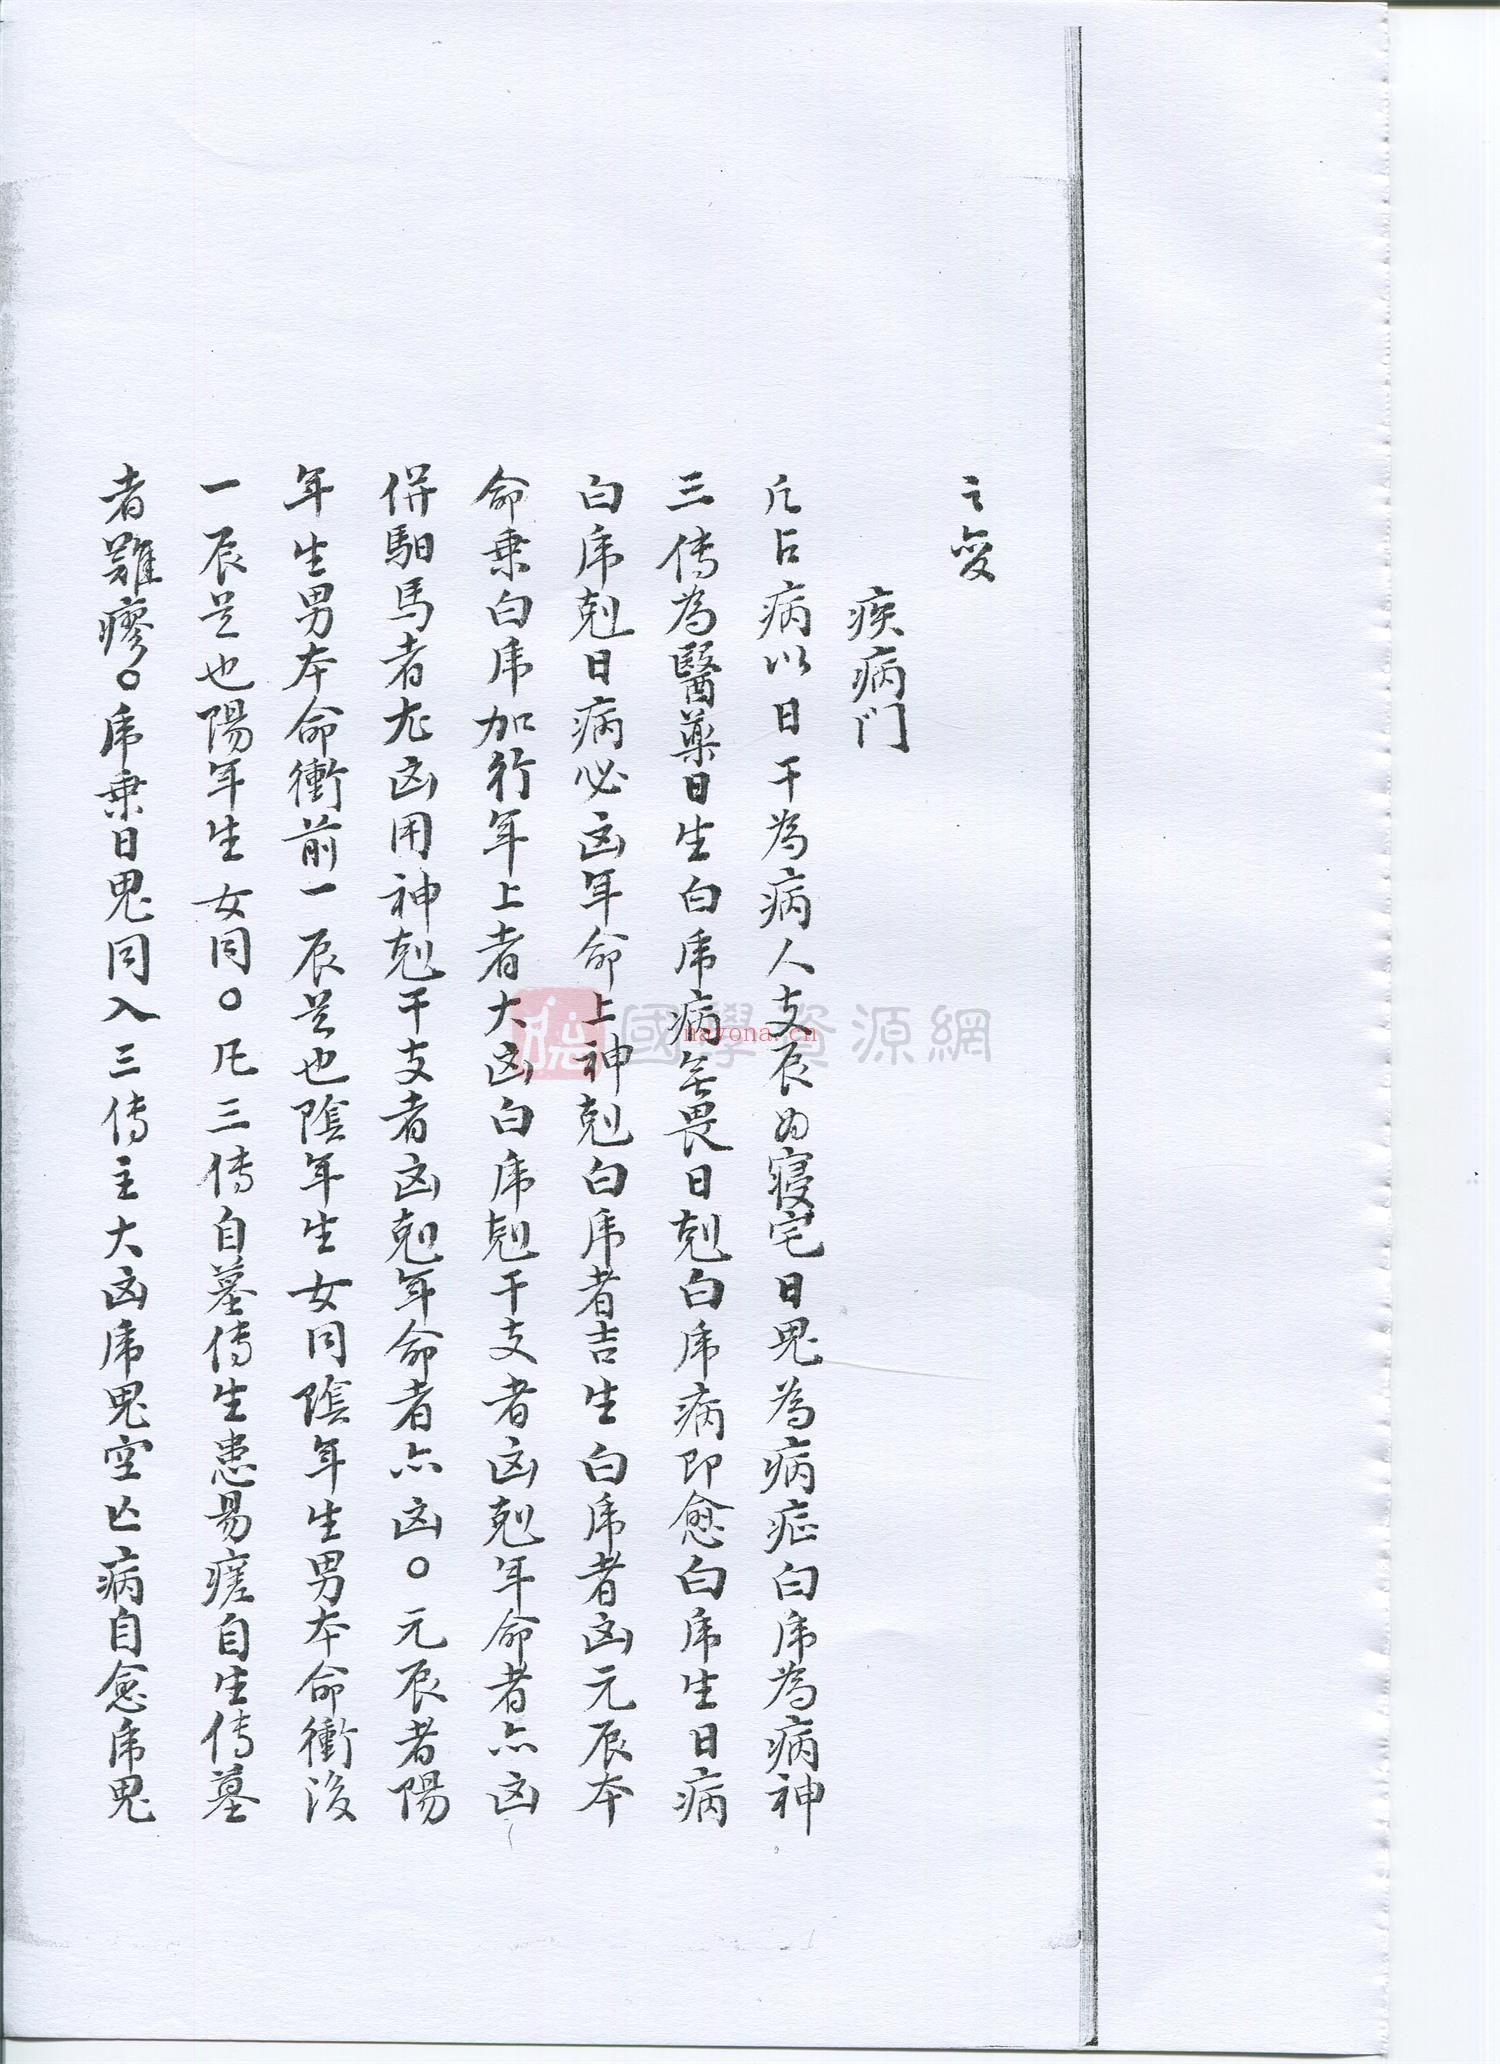 之變
疾病門
凡占病以日干為病人支辰为寢宅日鬼為病症白虎為病神
三传為醫藥日生白虎病無畏日剋白虎病即愈白虎生日病
白虎剋日病必凶年命上神剋白虎者吉生白虎者凶元辰本
命乗白虎加行年上者大凶白虎剋干支者凶剋年命者亦凶
併馹馬者尤凶用神剋干支者凶剋年命者亦凶○元辰者陽
年生男本命衝前一辰是也陰年生女同陰年生男本命衝後
一辰是也陽年生女同○凡三传自墓传生患易瘥自生传墓
者難瘳○虎乗日鬼同入三传主大凶虎鬼空亡病自愈虎鬼
國學資源網
nayona.cn